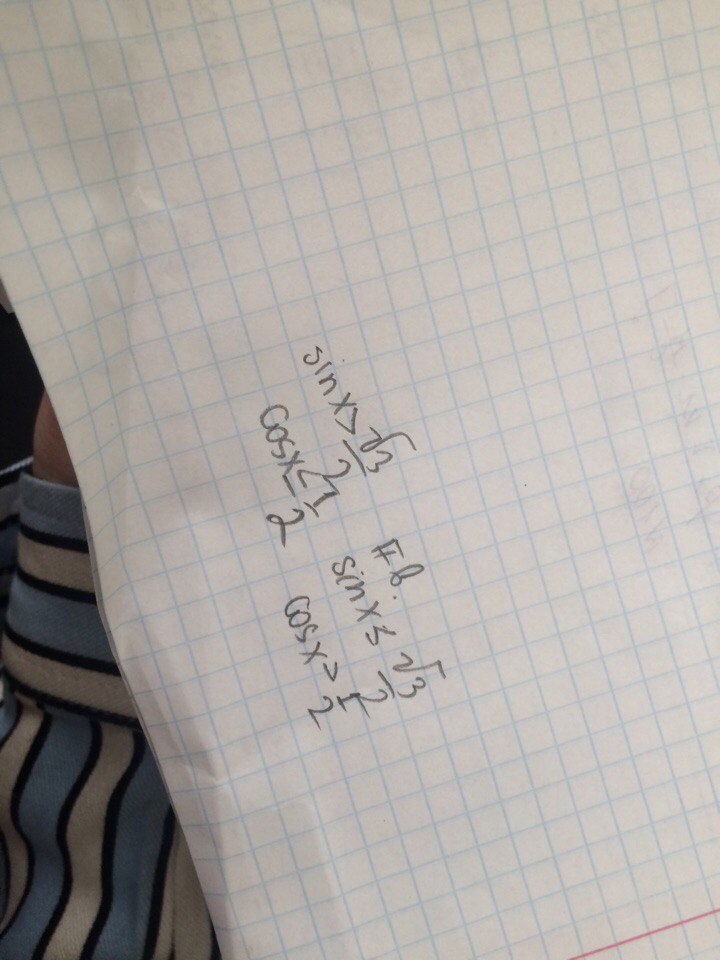 sin x > √3/2
cos x ≤ 1/2
sin x ≤ √3/2
cos x > 1/2